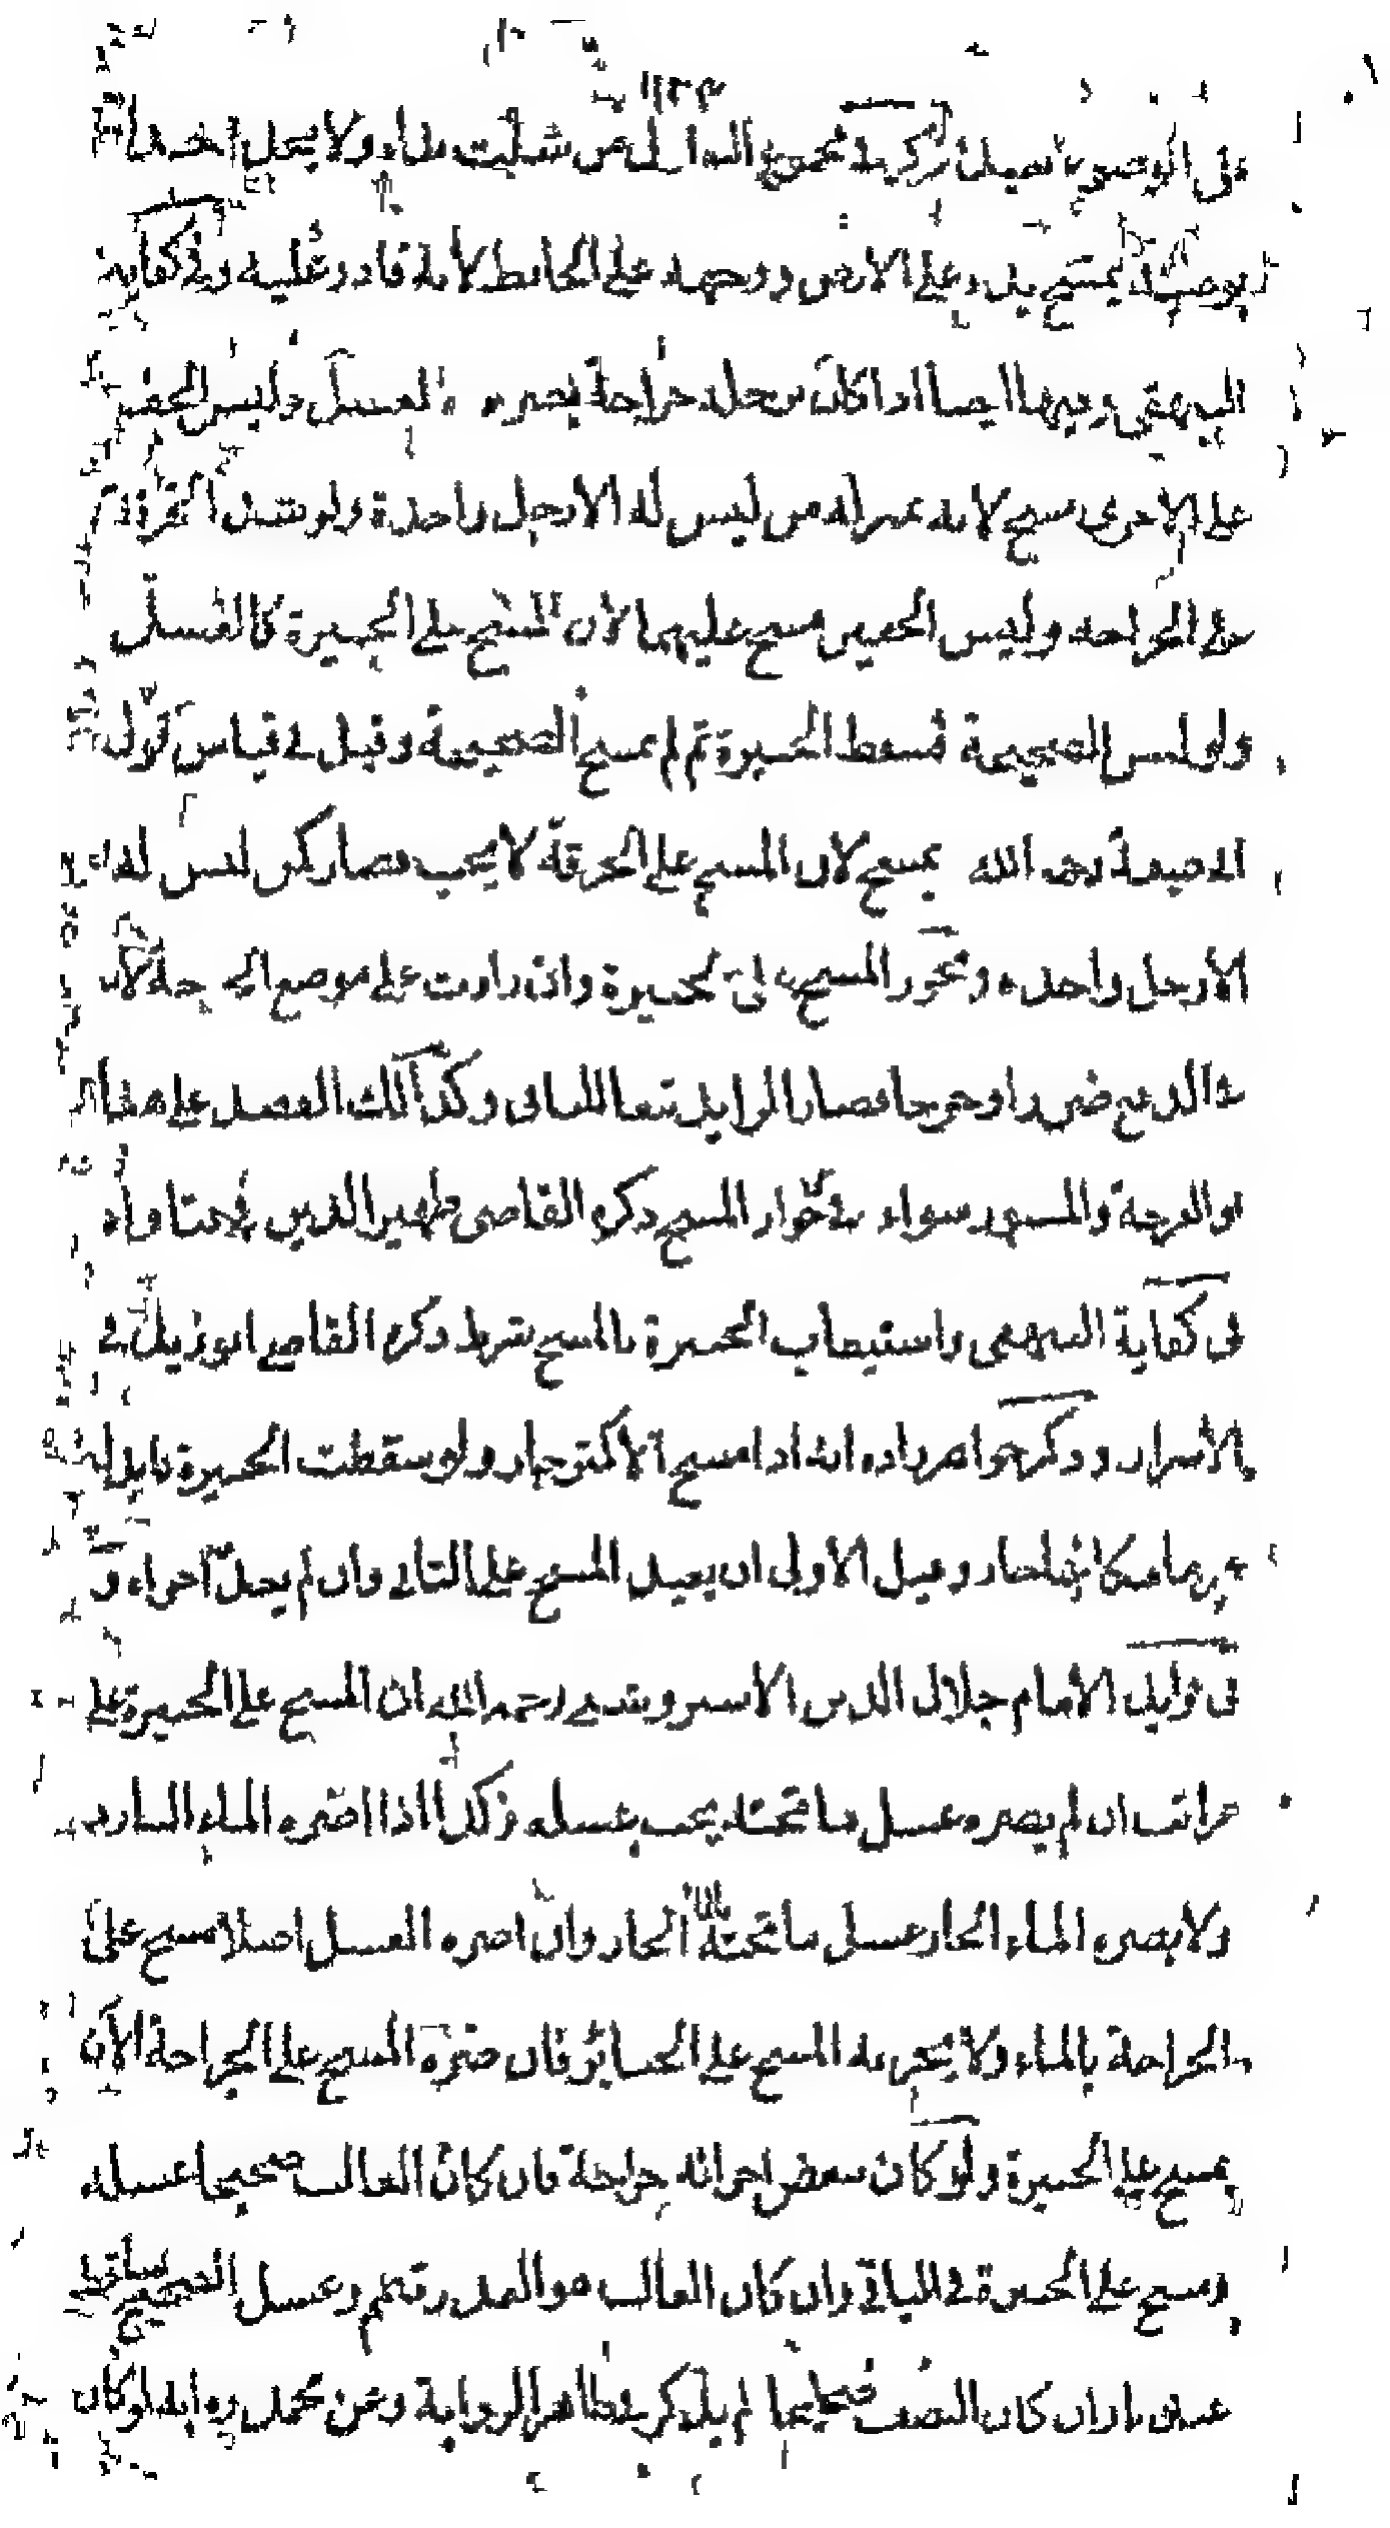 على الوضوء يصلى ذكر في مجموع النوازل من شلت يداه ولا يجد احدا
يوضئه يمسح يده على الارض ووجهه على الحائط لانه قادر عليه وفي كفاية
البيهقي وفيها ايضا اذا كان برجله جراحة يضره الغسل وليس الخف
على الاخرى مسح لانه بمنزلة من ليس له الا رجل واحدة ولو شد الخرقة
على الجراحة ولبس الخفين مسح عليهما لان المسح على الجبيرة كالغسل
ولو لبس الصحيحة فسقط الجبيرة ثم لم يمسح الصحيحة وقيل في قياس قول
ابي حنيفة رحمه الله يمسح لان المسح على الخرقة لا يجب فصار كمن ليس له
الا رجل واحدة ويجوز المسح على الجبيرة وان زادت على موضع الجراحة لان
في الدفع ضررا وحرجا فصار الزايد تبعا للباقى وكذلك الفصد على هذا
والقرحة والكسر سواء في جواز المسح ذكره القاضى ظهير الدين في فتاواه
في كفاية البيهقى واستيعاب الجبيرة بالمسح شرط ذكره القاضي ابو زيد في
الاسرار وذكر خواهرزاده انه اذا مسح الاكثر جاز ولو سقطت الجبيرة فابدلها
غيرها مكانها جاز وقيل الاولى ان يعيد المسح على الثاني وان لم يعد اجزاه و
في فوايد الامام جلال الدين الاسروشني رحمه الله ان المسح على الجبيرة على
مراتب ان لم يضره غسل ما تحته يجب غسله وكذا اذا اضره الماء البارد
ولا يضره الماء الحار غسل ما تحته بالماء الحار وان اضره الغسل اصلا مسح على
الجراحة بالماء ولا يجزيه المسح على الجبائر فان ضره المسح على الجراحة الآن
يمسح على الجبيرة ولو كان ببعض اجزائه جراحة فان كان الغالب صحيحا غسله
ومسح على الجبيرة في الباقي وان كان الغالب هو المجدور تيمم وغسل الصحيح ساقط
عندنا وان كان النصف صحيحا لم يذكر في ظاهر الرواية وعن محمد رواية لو كان